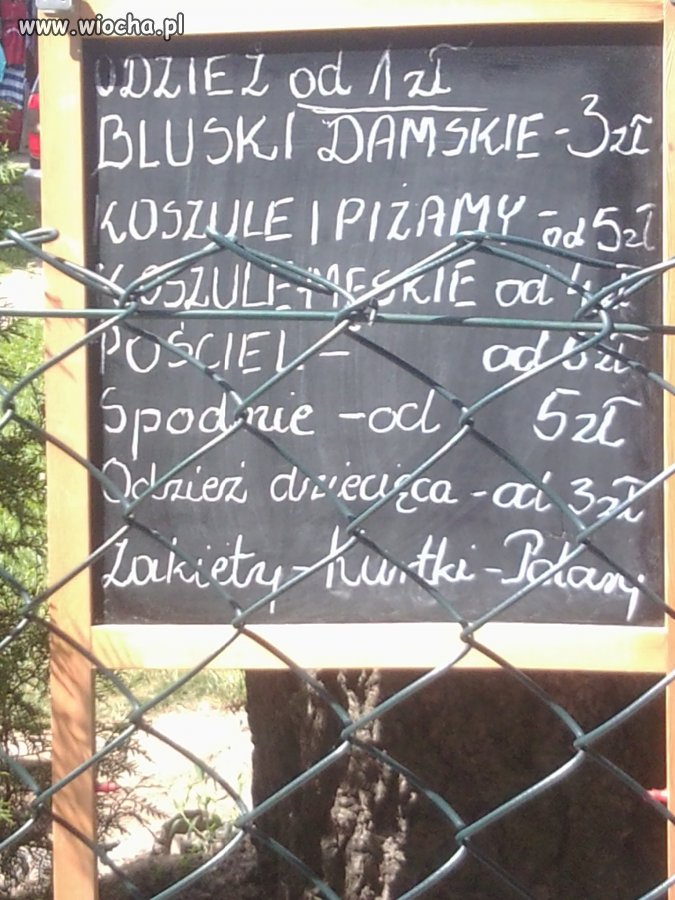 www.wiocha.pl
ODZIEŻ od 1zł
BLUSKI DAMSKIE - 3zł
KOSZULE I PIŻAMY - od 5zł
KOSZULE MĘSKIE od 4zł
POŚCIEL - od 5zł
Spodnie - od 5zł
Odzież dziecięca - od 3zł
Żakiety - kurtki - Polary